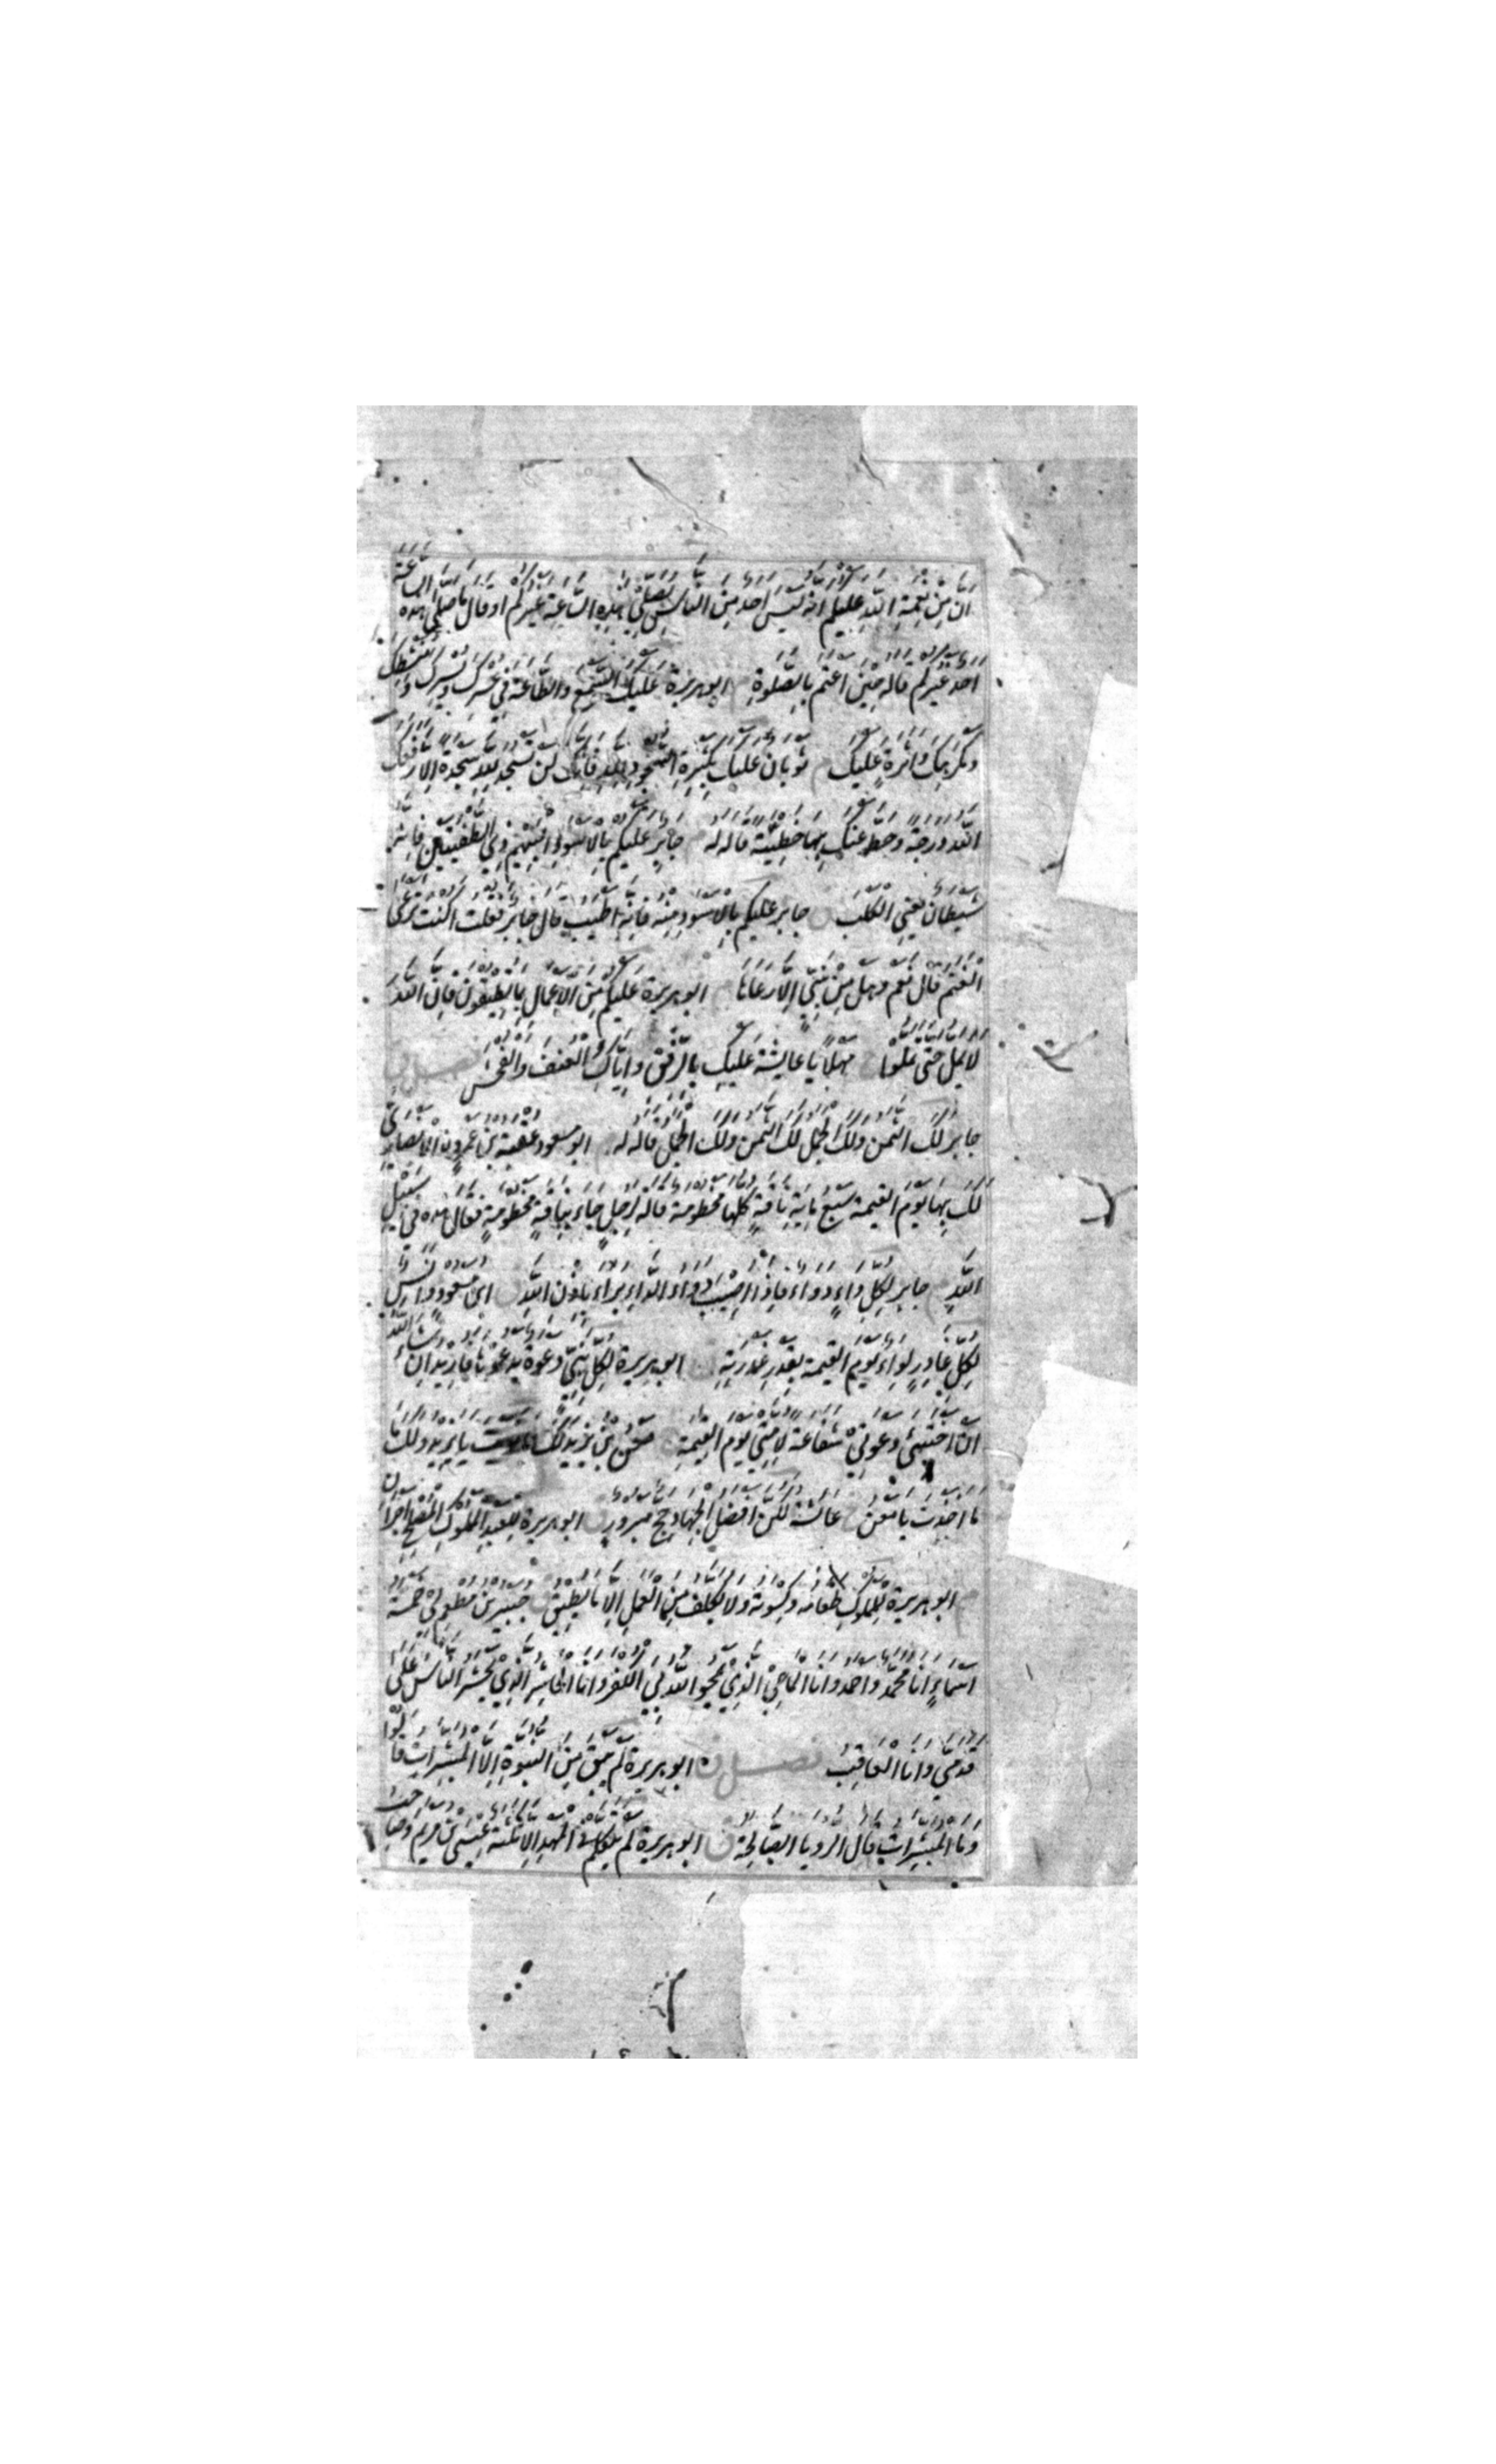 ان من نعمة الله عليكم انه ليس احد من الناس يصلى هذه الساعة غيركم او قال ما صلى هذه الساعة
احد غيركم قاله حين اعتم بالصلوة م ابو هريرة عليك السمع والطاعة فى عسرك ويسرك ومنشطك
ومكرهك واثرة عليك م ثوبان عليك بكثرة السجود لله فانك لن تسجد لله سجدة الا رفعك
الله درجة وحط عنك بها خطيئة قاله له م جابر عليكم بالاسود البهيم ذى الطفيتين فانه
شيطان يعنى الكلب ق جابر عليكم بالاسود منه فانه اطيب قال جابر فقلت اكنت ترعى
الغنم قال نعم وهل من نبى الا رعاها ابو هريرة عليكم من الاعمال ما تطيقون فان الله
لا يمل حتى تملوا خ مهلا يا عايشة عليك بالرفق واياك والعنف والفحش فصل ق
جابر لك الثمن ولك الجمل لك الثمن ولك الجمل قاله له م ابو مسعود عقبة بن عمرو الانصارى
لك بها يوم القيمة سبع ماية ناقة كلها مخطومة قاله لرجل جاء بناقة مخطومة فقال هذه فى سبيل
الله م جابر لكل داء دواء فاذا اصيب دواء الداء براء باذن الله ق ابن مسعود وانس
لكل غادر لواء يوم القيمة بقدر غدرته ق ابو هريرة لكل نبى دعوة يدعو بها فاريد ان شاء الله
ان اختبئ دعوتى شفاعة لامتى يوم القيمة خ معن بن يزيد لك ما نويت يا يزيد ولك
ما اخذت يا معن خ عائشة لكن افضل الجهاد حج مبرور ق ابو هريرة للعبد المملوك المصلح اجران
م ابو هريرة للمملوك طعامه وكسوته ولا يكلف من العمل الا ما يطيق ق جبير بن مطعم لى خمسة
اسماء انا محمد واحمد وانا الماحى الذى يمحو الله بى الكفر وانا الحاشر الذى يحشر الناس على
قدمى وانا العاقب فصل خ ابو هريرة لم يبق من النبوة الا المبشرات قالوا
وما المبشرات قال الرويا الصالحة ق ابو هريرة لم يتكلم فى المهد الا ثلثة عيسى بن مريم وصاحب